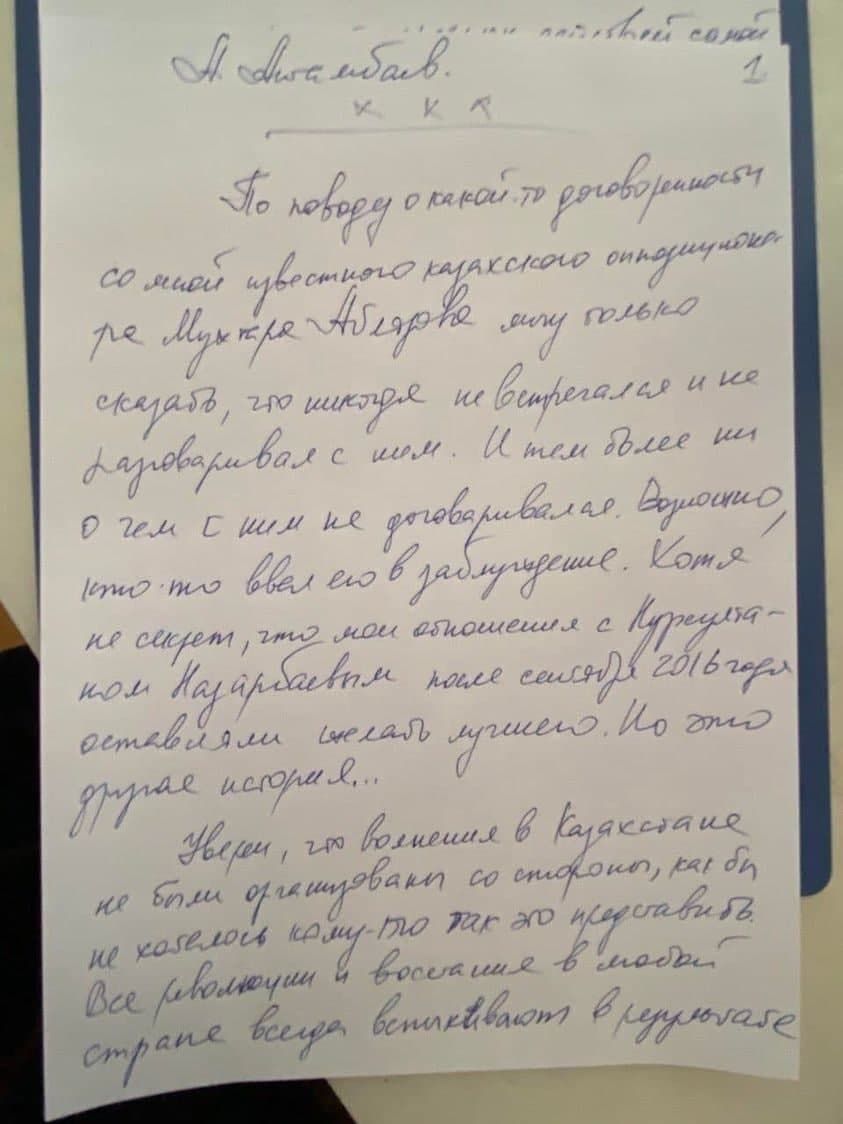 самой
А. Атамбаев. 1
х к
По поводу о какой-то договоренности
со мной известного казахского оппозиционе-
ра Мухтара Аблязова могу только
сказать, что никогда не встречался и не
разговаривал с ним. И тем более ни
о чем с ним не договаривался. Возможно,
кто-то ввел его в заблуждение. Хотя
не секрет, что мои отношения с Нурсулта-
ном Назарбаевым после сентября 2016 года
оставляли желать лучшего. Но это
другая история...
Уверен, что волнения в Казахстане
не были организованы со стороны, как бы
не хотелось кому-то так это представить.
Все революции и восстания в любой
стране всегда вспыхивают в результате